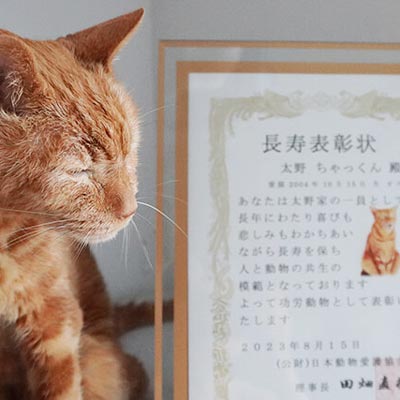 長寿表彰状
太野 ちゃっくん 殿
2004年10月15日
あなたは太野家の一員として
長年にわたり喜びも
悲しみもわかちあい
ながら長寿を保ち
人と動物の共生の
模範となっております
よって功労動物として表彰い
たします
2023年8月15日
(公財)日本動物愛護協
理事長 田畑直